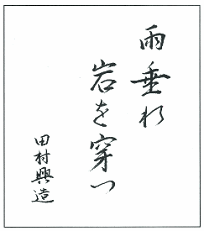 雨垂れ
岩を穿つ
田村興造